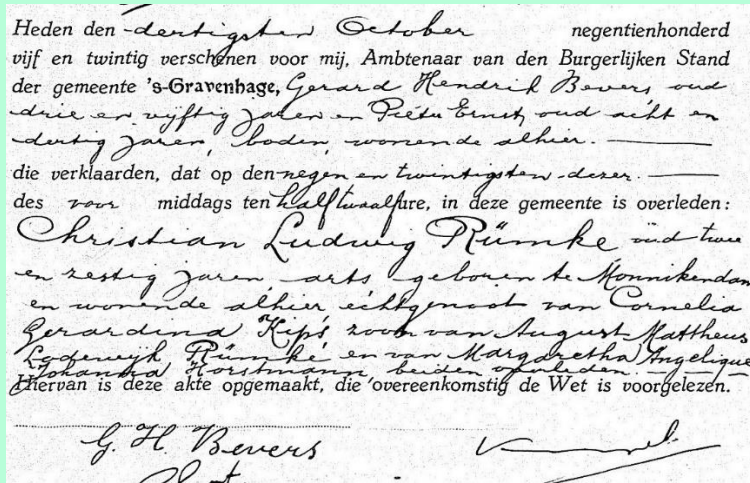 Heden den dertigsten October negentienhonderd
vijf en twintig verschenen voor mij, Ambtenaar van den Burgerlijken Stand
der gemeente 's-Gravenhage, Gerard Hendrik Bevers oud
drie en vijftig jaren en Pieter Ernst, oud acht en
dertig jaren, boden, wonende alhier.
die verklaarden, dat op den negen en twintigsten dezer
des voor middags ten half twaalf ure, in deze gemeente is overleden:
Christian Ludwig Rümke oud twee
en zestig jaren, arts, geboren te Monnikendam
en wonende alhier echtgenoot van Cornelia
Gerardina Kips, zoon van August Mattheus
Lodewijk Rümke en van Margaretha Angelique
Johanna Horstmann beiden overleden.
Hiervan is deze akte opgemaakt, die overeenkomstig de Wet is voorgelezen.
G. H. Bevers